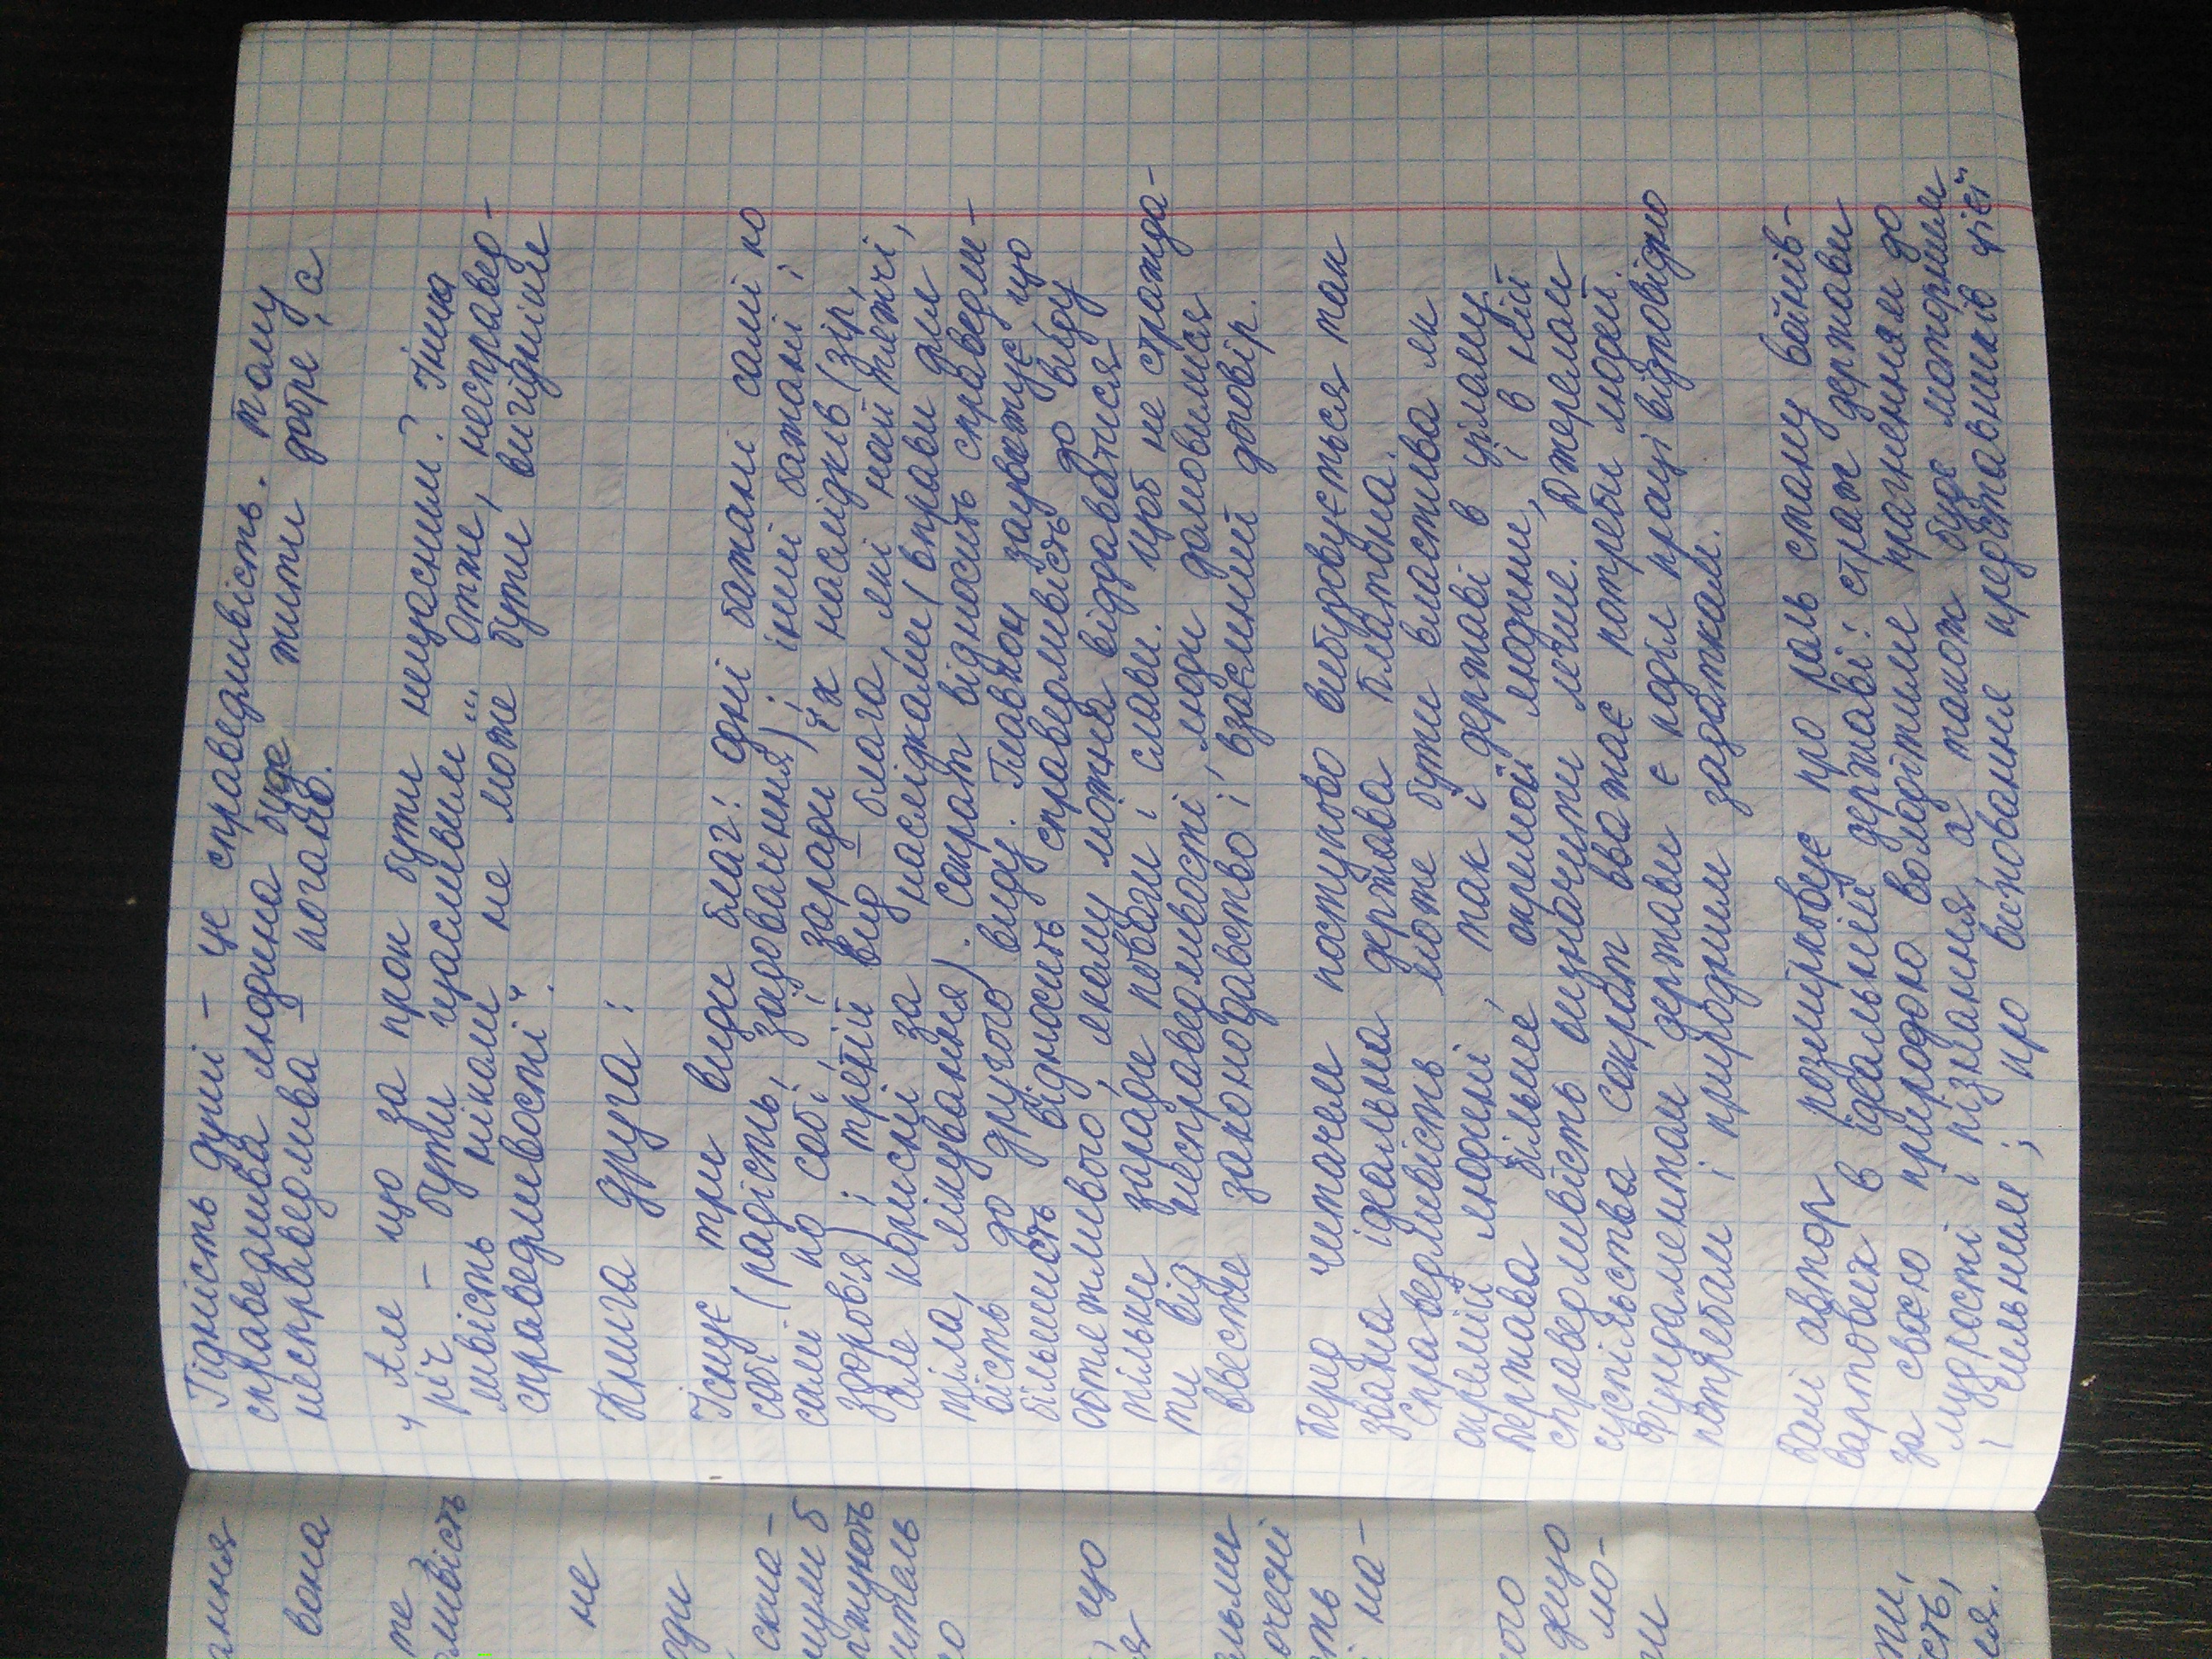 Гідність душі - це справедливість. Тому
справедлива людина буде жити добре, а
несправедлива - погано.
" Але - що за прок бути нещасним? Інша
річ - бути щасливим"... Отже, несправед-
ливість ніколи не може бути вигідніше
справедливості".
Книга друга:
Існує три види благ: одні бажані самі по
собі (радість, задоволення); інші бажані і
самі по собі, і заради їх наслідків (зір,
здоров'я); третій вид - блага, які най тяжчі,
але корисні за наслідками (вправи для
тіла, лікування). Сократ відносить справедли-
вість до другого виду. Главкон зауважує що
більшість відносить справедливість до виду
обтяжливого, якому можна віддаватися
тільки заради поваги і слави. Щоб не стражда-
ти від несправедливості, люди домовилися
ввести законодавство і взаємний договір.
Перед читачем поступово вибудовується так
звана ідеальна держава Платона.
Справедливість може бути властива як
окремій людині, так і державі в цілому.
Держава більше окремої людини, і в ній
справедливість визначити легше. Джерелом
суспільства Сократ вважає потреби людей.
Фундаментом держави є поділ праці відповідно
потребам і природним задаткам.
Далі автор розмірковує про роль стану воїнів-
вартових в ідеальній державі: страж держави
за своєю природою володітиме прагненням до
мудрості і пізнання, а також буде моторним
і сильним; про виховання представників цієї
ання
вона
те
ливість
не
оди
скла-
шули б
ажують
италь
ю
, що
ся
альми
очесні
ть
і на-
кого
дещо
лю-
ти
ти,
ість,
ея.